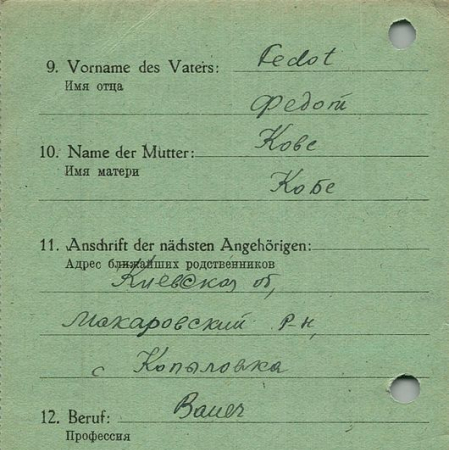 9. Vorname des Vaters: Fedot
Имя отца
Федот
10. Name der Mutter: Кове
Имя матери
Кове
11. Anschrift der nächsten Angehörigen:
Адрес ближайших родственников
Киевская об,
Макаровский р-н,
с Копыловка
12. Beruf: Bauer
Профессия